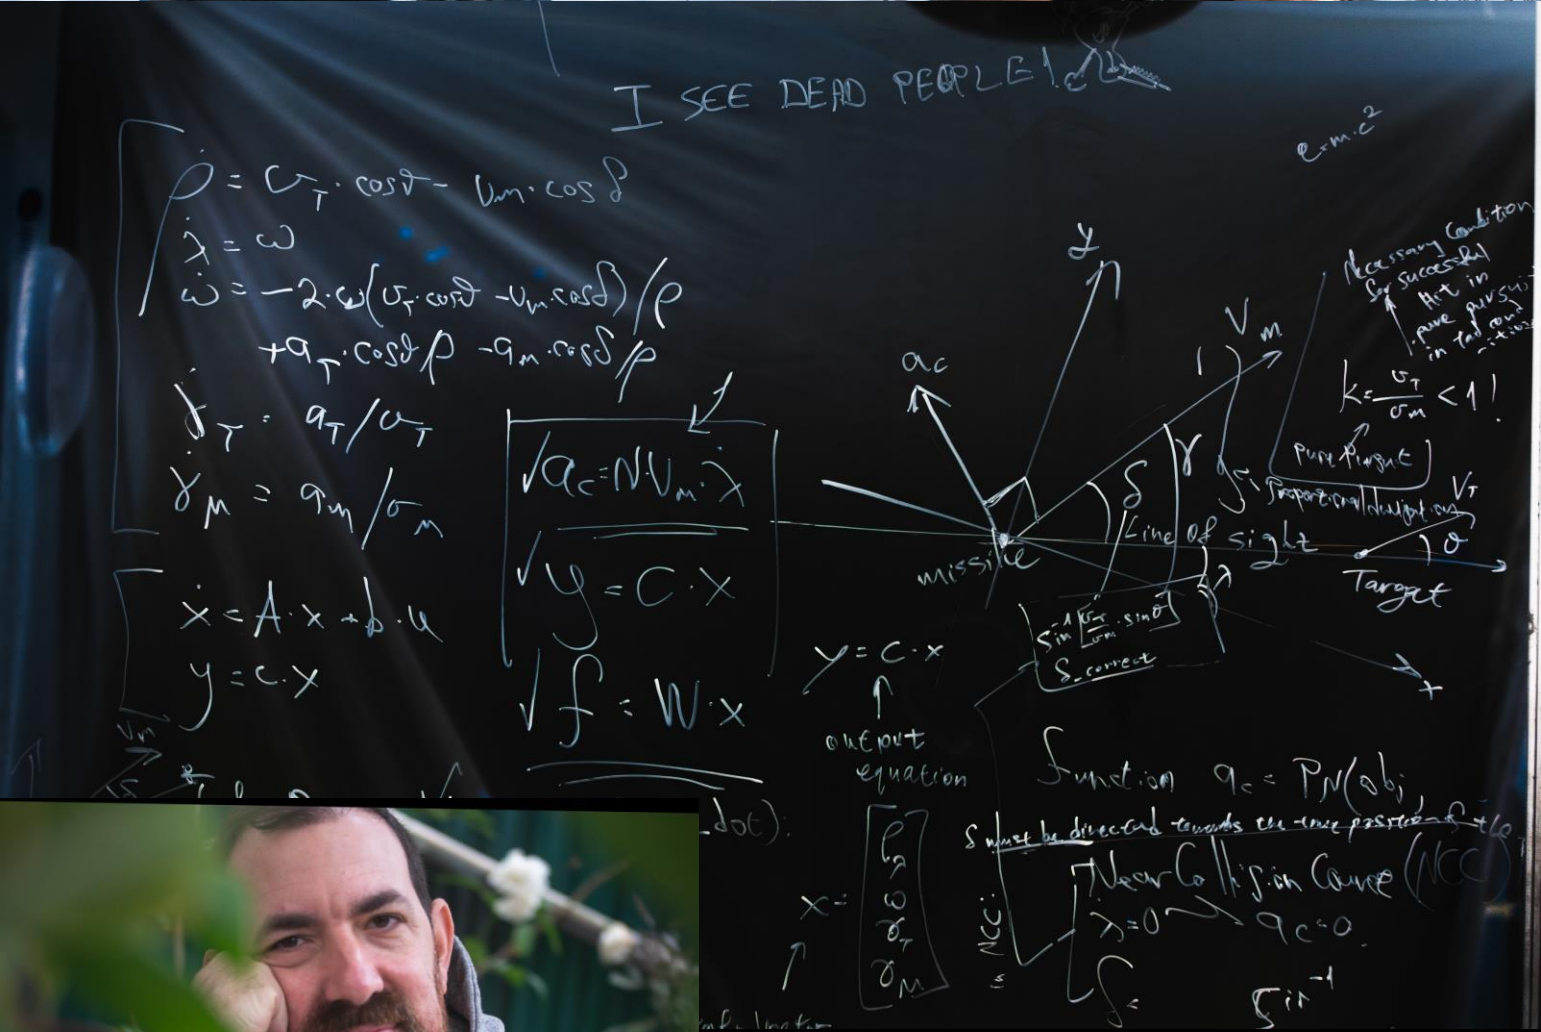 I SEE DEAD PEOPLE!
e=m.c²
ρ̇ = v_T · cosθ - v_m · cosδ
λ̇ = ω
ω̇ = -2·ω(v_T·cosθ - v_m·cosδ)/ρ
+a_T·cosθ/ρ - a_m·cosδ/ρ
γ̇_T = a_T/v_T
γ̇_M = a_m/v_m
ẋ = A·x + b·u
y = c·x
√ a_c = N·V_m·λ̇
√ y = C·x
√ f = W·x
y
a_c
V_m
γ
δ
Line of sight
missile
λ
Target
θ
V_T
x
Necessary Condition
for successful
in
pure pursuit
k = v_T/v_m < 1!
pure
Proportional
sin⁻¹[v_T/v_m · sinθ]
δ_correct
y = C·x
output
equation
function a_c = PN(obj,
_dot):
must be directed towards the true position of the
Near Collision Course (NCC)
NCC:
λ̇=0
a_c=0
x = [ρ
λ
ω
γ_T
γ_M]
sin⁻¹
V_m